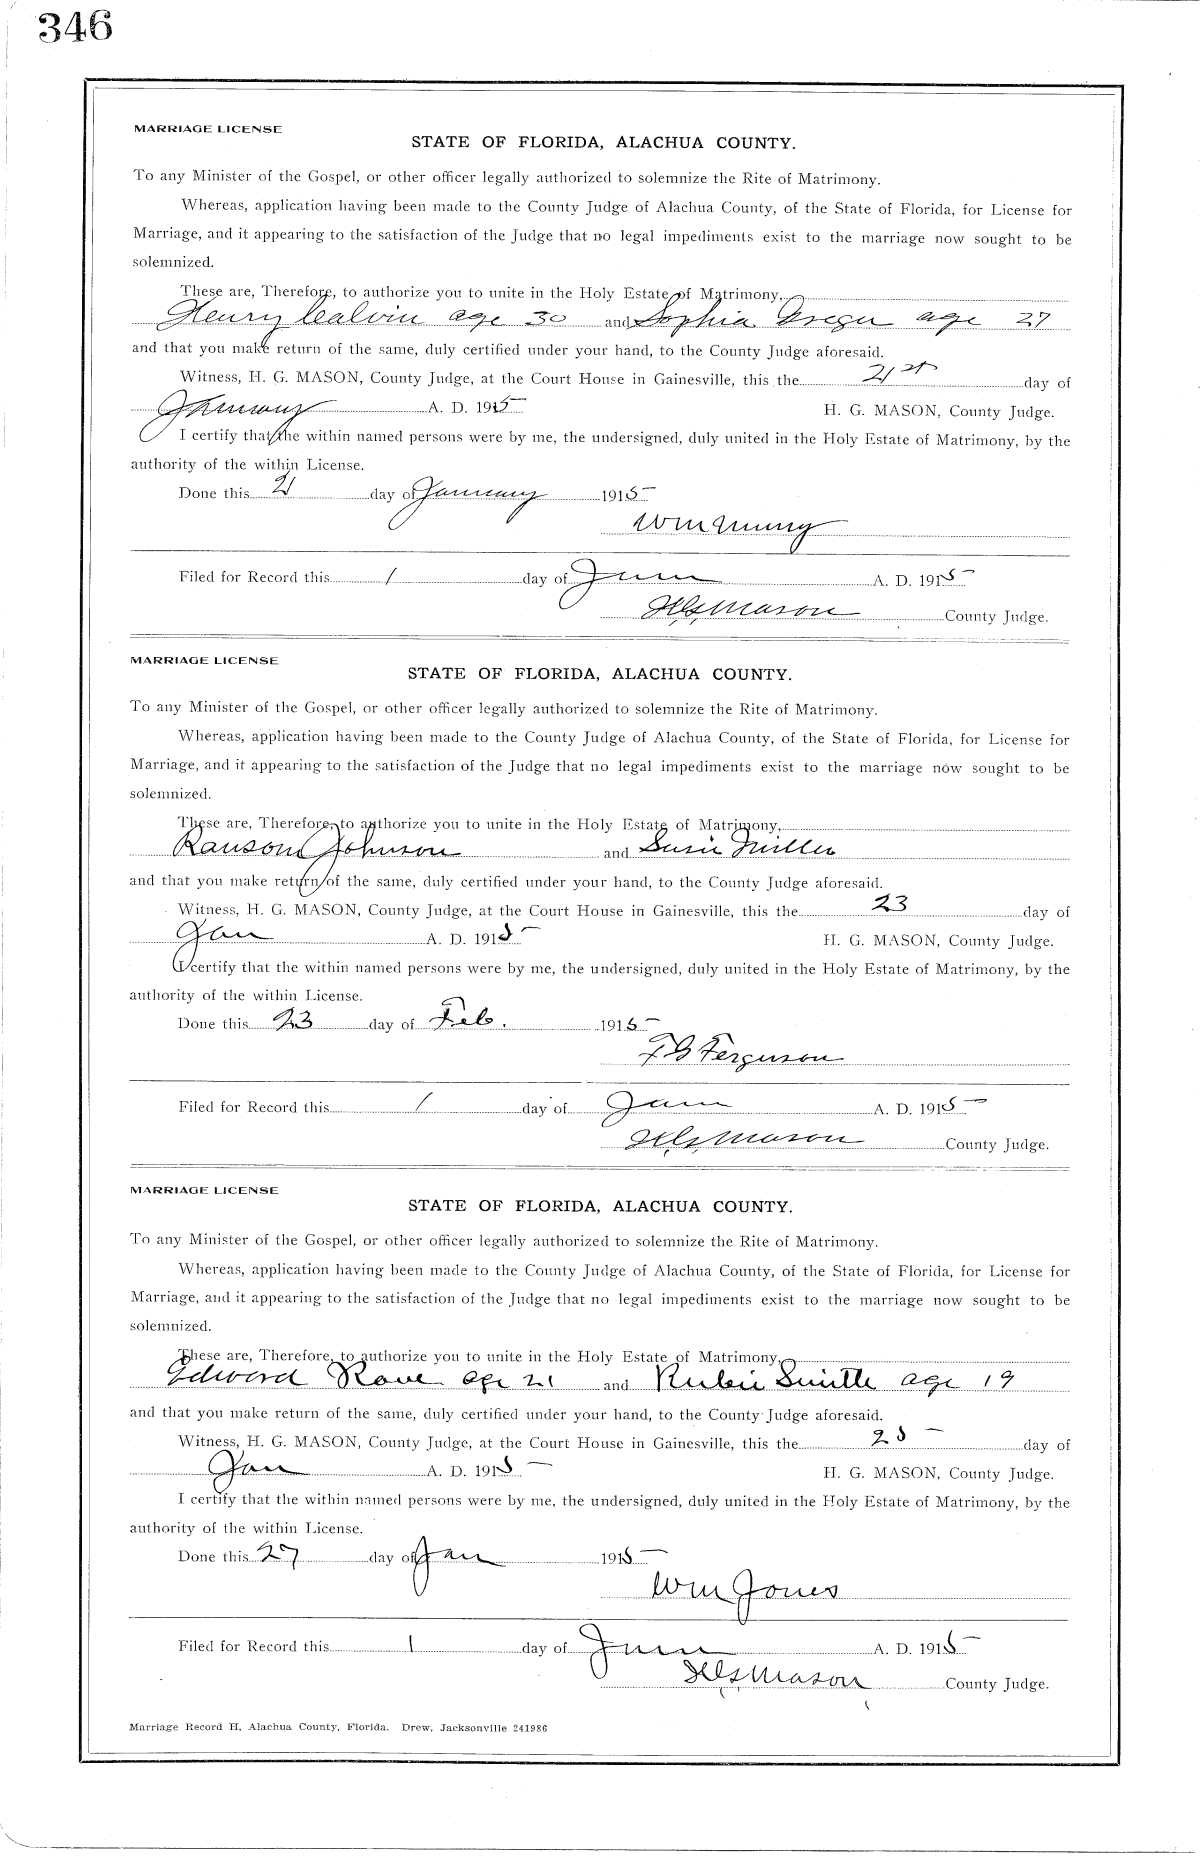 346
MARRIAGE LICENSE
STATE OF FLORIDA, ALACHUA COUNTY.
To any Minister of the Gospel, or other officer legally authorized to solemnize the Rite of Matrimony.
Whereas, application having been made to the County Judge of Alachua County, of the State of Florida, for License for
Marriage, and it appearing to the satisfaction of the Judge that no legal impediments exist to the marriage now sought to be
solemnized.
These are, Therefore, to authorize you to unite in the Holy Estate of Matrimony,
Henry Calvin age 30 and Sophia age 27
and that you make return of the same, duly certified under your hand, to the County Judge aforesaid.
Witness, H. G. MASON, County Judge, at the Court House in Gainesville, this the 21st day of
January A. D. 1915 H. G. MASON, County Judge.
I certify that the within named persons were by me, the undersigned, duly united in the Holy Estate of Matrimony, by the
authority of the within License.
Done this 21 day of January 1915
Wm
Filed for Record this 1 day of June A. D. 1915
H.G. Mason County Judge.
MARRIAGE LICENSE
STATE OF FLORIDA, ALACHUA COUNTY.
To any Minister of the Gospel, or other officer legally authorized to solemnize the Rite of Matrimony.
Whereas, application having been made to the County Judge of Alachua County, of the State of Florida, for License for
Marriage, and it appearing to the satisfaction of the Judge that no legal impediments exist to the marriage now sought to be
solemnized.
These are, Therefore, to authorize you to unite in the Holy Estate of Matrimony,
Ransom Johnson and Susie Miller
and that you make return of the same, duly certified under your hand, to the County Judge aforesaid.
Witness, H. G. MASON, County Judge, at the Court House in Gainesville, this the 23 day of
Jan A. D. 1915 H. G. MASON, County Judge.
I certify that the within named persons were by me, the undersigned, duly united in the Holy Estate of Matrimony, by the
authority of the within License.
Done this 23 day of Feb. 1915
F G Ferguson
Filed for Record this 1 day of June A. D. 1915
H.G. Mason County Judge.
MARRIAGE LICENSE
STATE OF FLORIDA, ALACHUA COUNTY.
To any Minister of the Gospel, or other officer legally authorized to solemnize the Rite of Matrimony.
Whereas, application having been made to the County Judge of Alachua County, of the State of Florida, for License for
Marriage, and it appearing to the satisfaction of the Judge that no legal impediments exist to the marriage now sought to be
solemnized.
These are, Therefore, to authorize you to unite in the Holy Estate of Matrimony,
Edward age 21 and Rubie Smith age 19
and that you make return of the same, duly certified under your hand, to the County Judge aforesaid.
Witness, H. G. MASON, County Judge, at the Court House in Gainesville, this the 25 day of
Jan A. D. 1915 H. G. MASON, County Judge.
I certify that the within named persons were by me, the undersigned, duly united in the Holy Estate of Matrimony, by the
authority of the within License.
Done this 27 day of Jan 1915
Wm Jones
Filed for Record this 1 day of June A. D. 1915
H.G. Mason County Judge.
Marriage Record H, Alachua County, Florida. Drew, Jacksonville 241986